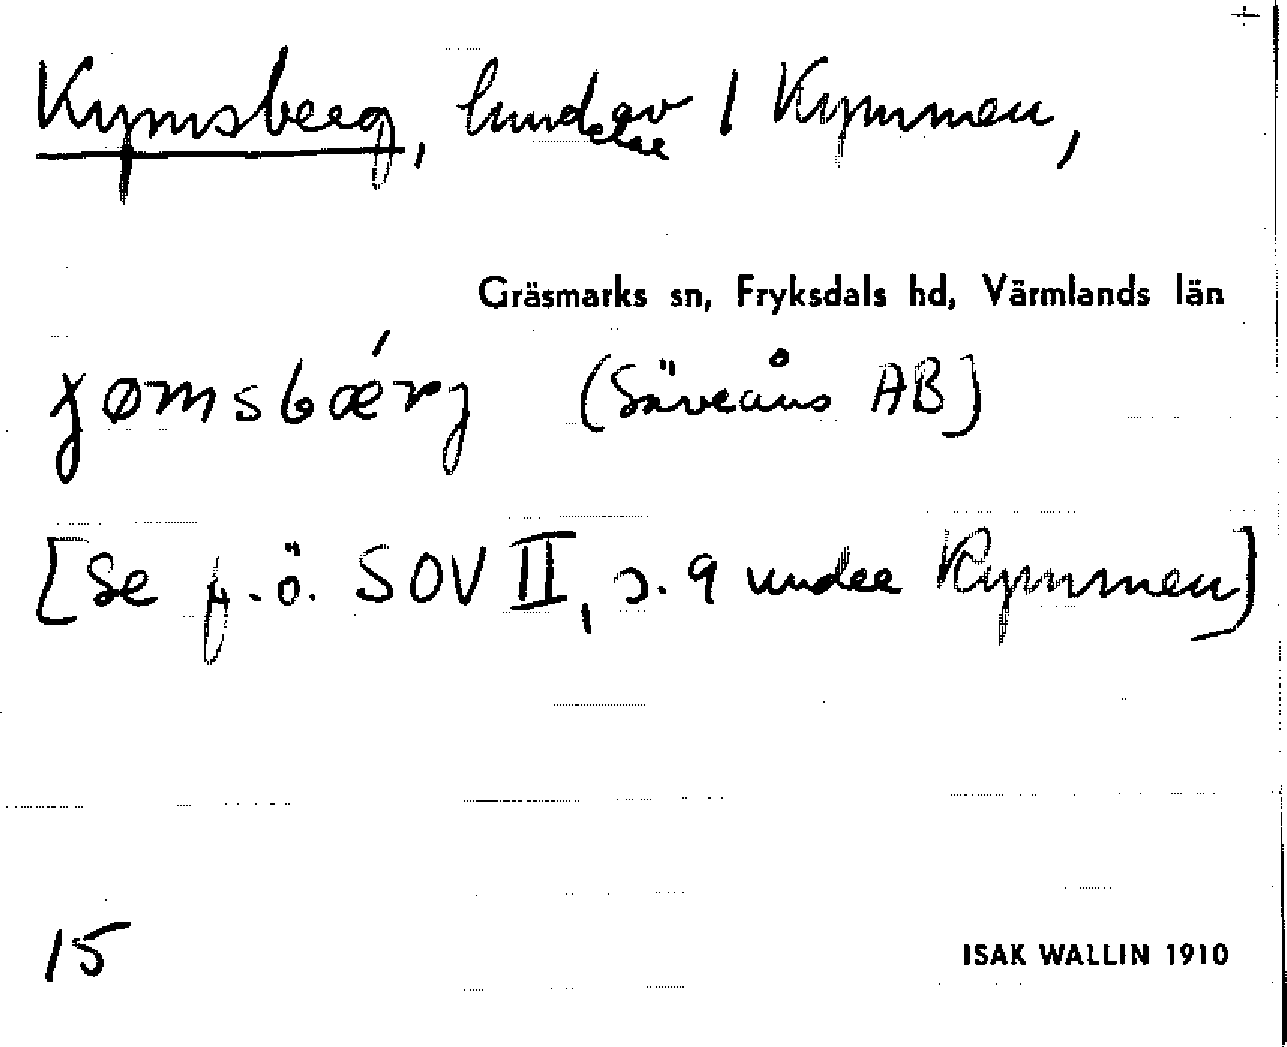 Kymsberg, lund av 1 Kymmen,
Gräsmarks sn, Fryksdals hd, Värmlands län
jømsbǽrj (Säveåns AB)
[Se f.ö. SOV II, s. 9 under Kymmen]
15
ISAK WALLIN 1910